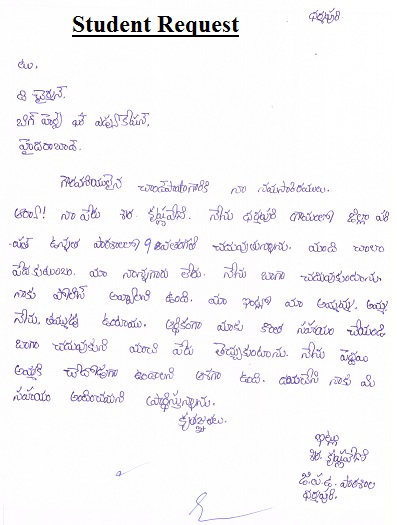 Student Request
ధర్మపురి
టు,
ది చైర్మన్,
బిగ్ హెల్ప్ ఫర్ ఎడ్యుకేషన్,
హైదరాబాద్.
గౌరవనీయులైన చాంద్‌పాషాగారికి నా నమస్కారములు.
నా పేరు శిర. కృష్ణవేణి. నేను ధర్మపురి గ్రామంలో జిల్లా పరి
-షత్ ఉన్నత పాఠశాలలో 9 వతరగతి చదువుతున్నాను. మాది చాలా
పేదకుటుంబం. మా నాన్నగారు లేరు. నేను బాగా చదువుకుంటాను.
నాకు పోలీస్ అవ్వాలని ఉంది. మా ఇంట్లో మా అమ్మమ్మ, అమ్మ,
నేను, తమ్ముడు ఉంటాము. ఆర్థికంగా మాకు కొంత సహాయం చేయండి
బాగా చదువుకుని మంచి పేరు తెచ్చుకుంటాను. నేను పెద్దయి
అమ్మకి చేదోడుగా ఉండాలని ఆశగా ఉంది. దయచేసి నాకు మీ
సహాయం అందించమని ప్రార్థిస్తున్నాను.
కృతజ్ఞతలు.
ఇట్లు
శిర. కృష్ణవేణి
జి.ప.ఉ. పాఠశాల
ధర్మపురి.